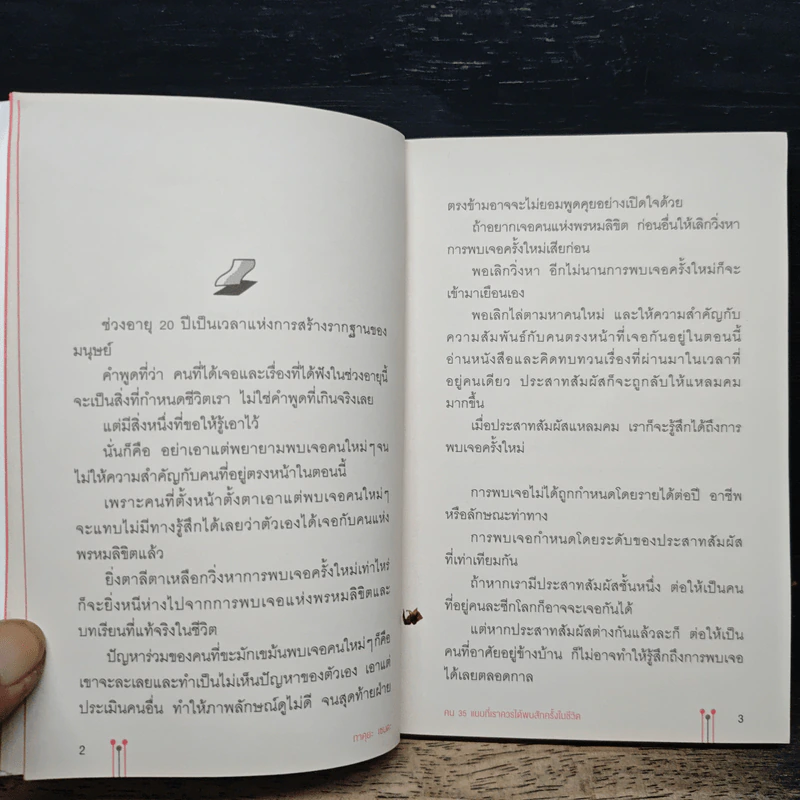 ช่วงอายุ 20 ปีเป็นเวลาแห่งการสร้างรากฐานของ
มนุษย์
คำพูดที่ว่า คนที่ได้เจอและเรื่องที่ได้ฟังในช่วงอายุนี้
จะเป็นสิ่งที่กำหนดชีวิตเรา ไม่ใช่คำพูดที่เกินจริงเลย
แต่มีสิ่งหนึ่งที่ขอให้รู้เอาไว้
นั่นก็คือ อย่าเอาแต่พยายามพบเจอคนใหม่ๆจน
ไม่ให้ความสำคัญกับคนที่อยู่ตรงหน้าในตอนนี้
เพราะคนที่ตั้งหน้าตั้งตาเอาแต่พบเจอคนใหม่ๆ
จะแทบไม่มีทางรู้สึกได้เลยว่าตัวเองได้เจอกับคนแห่ง
พรหมลิขิตแล้ว
ยิ่งตาลีตาเหลือกวิ่งหาการพบเจอครั้งใหม่เท่าไหร่
ก็จะยิ่งหนีห่างไปจากการพบเจอแห่งพรหมลิขิตและ
บทเรียนที่แท้จริงในชีวิต
ปัญหาร่วมของคนที่ขะมักเขม้นพบเจอคนใหม่ๆก็คือ
เขาจะละเลยและทำเป็นไม่เห็นปัญหาของตัวเอง เอาแต่
ประเมินคนอื่น ทำให้ภาพลักษณ์ดูไม่ดี จนสุดท้ายฝ่าย
2
ทาคุยะ เซนดะ
ตรงข้ามอาจจะไม่ยอมพูดคุยอย่างเปิดใจด้วย
ถ้าอยากเจอคนแห่งพรหมลิขิต ก่อนอื่นให้เลิกวิ่งหา
การพบเจอครั้งใหม่เสียก่อน
พอเลิกวิ่งหา อีกไม่นานการพบเจอครั้งใหม่ก็จะ
เข้ามาเยือนเอง
พอเลิกไล่ตามหาคนใหม่ และให้ความสำคัญกับ
ความสัมพันธ์กับคนตรงหน้าที่เจอกันอยู่ในตอนนี้
อ่านหนังสือและคิดทบทวนเรื่องที่ผ่านมาในเวลาที่
อยู่คนเดียว ประสาทสัมผัสก็จะถูกลับให้แหลมคม
มากขึ้น
เมื่อประสาทสัมผัสแหลมคม เราก็จะรู้สึกได้ถึงการ
พบเจอครั้งใหม่
การพบเจอไม่ได้ถูกกำหนดโดยรายได้ต่อปี อาชีพ
หรือลักษณะท่าทาง
การพบเจอกำหนดโดยระดับของประสาทสัมผัส
ที่เท่าเทียมกัน
ถ้าหากเรามีประสาทสัมผัสชั้นหนึ่ง ต่อให้เป็นคน
ที่อยู่คนละซีกโลกก็อาจจะเจอกันได้
แต่หากประสาทสัมผัสต่างกันแล้วละก็ ต่อให้เป็น
คนที่อาศัยอยู่ข้างบ้าน ก็ไม่อาจทำให้รู้สึกถึงการพบเจอ
ได้เลยตลอดกาล
คน 35 แบบที่เราควรได้พบสักครั้งในชีวิต
3